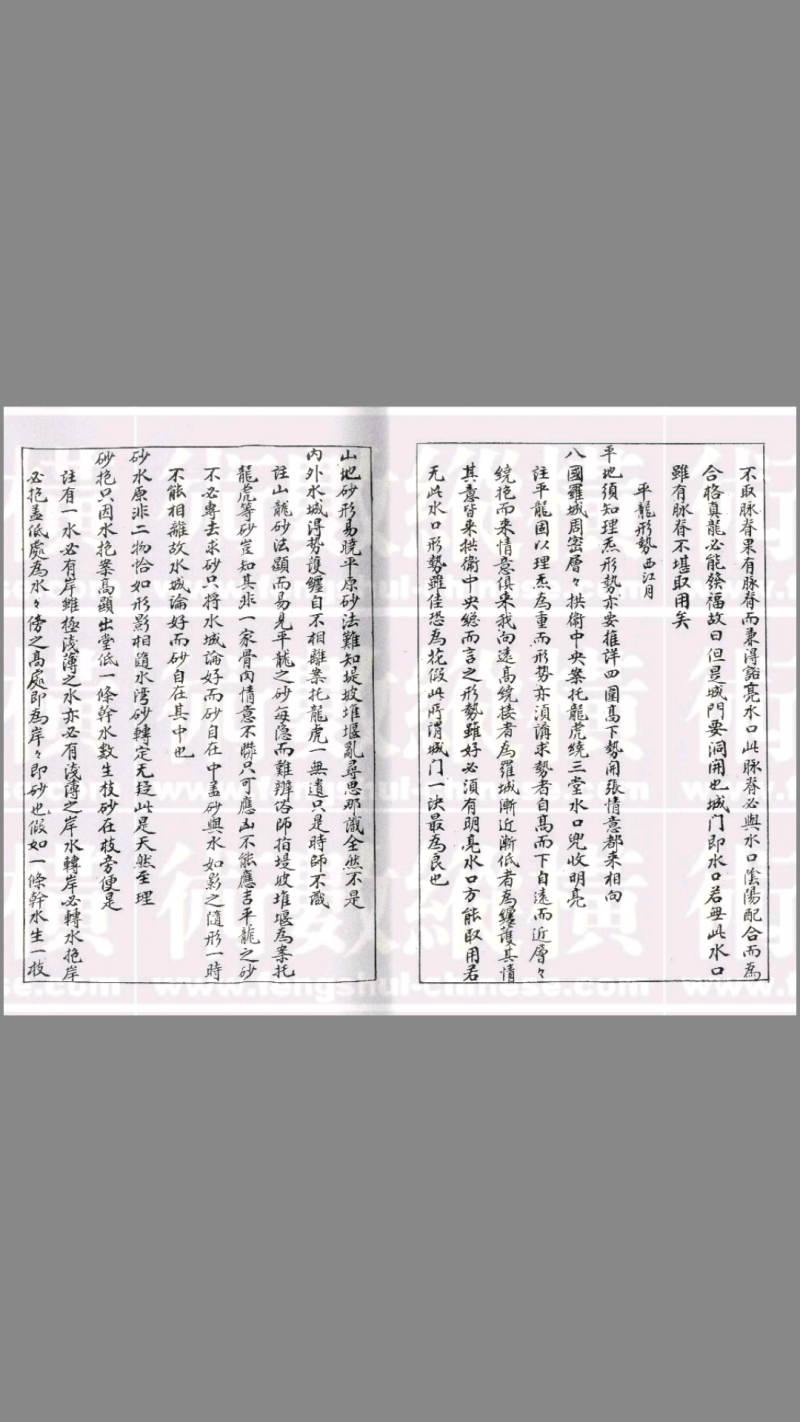 不取脉脊果有脉脊而兼得豁亮水口此脉脊必與水口陰陽配合而為
合格真龍必能發福故曰但是城門要洞開也城门即水口若毋此水口
雖有脉脊不堪取用矣
平龍形勢 西江月
平地須知理炁形勢亦要推詳四圍高下勢開張情意都来相向
八國羅城周密層々拱衛中央案托龍虎繞三堂水口兜收明亮
註平龍固以理炁為重而形勢亦須講求勢者自高而下自遠而近層々
繞抱而来情意俱来我向遠高繞接者為羅城漸近漸低者為纏護其情
其意皆来拱衛中央總而言之形勢雖好必須有明亮水口方能取用若
无此水口形勢雖佳恐為花假此所謂城门一訣最為良也
山地砂形易曉平原砂法難知堤坡堆堰亂尋思那識全然不是
内外水城得勢護纏自不相離案托龍虎一無遺只是時師不識
註山龍砂法顯而易見平龍之砂每隐而難辨俗師指堤坡堆堰為案托
龍虎等砂豈知其非一家骨肉情意不聯只可應凶不能應吉平龍之砂
不必專去求砂只將水城論好而砂自在中盖砂與水如影之隨形一時
不能相離故水城論好而砂自在其中也
砂水原非二物恰如形影相隨水湾砂轉定无疑此是天然至理
砂抱只因水抱案高顯出堂低一條幹水數生枝砂在枝旁便是
註有一水必有岸雖極淺薄之水亦必有淺薄之岸水轉岸必轉水抱岸
必抱盖低處為水々傍之高處即為岸々即砂也假如一條幹水生一枝
術數縱橫
www.fengshui-chinese.com